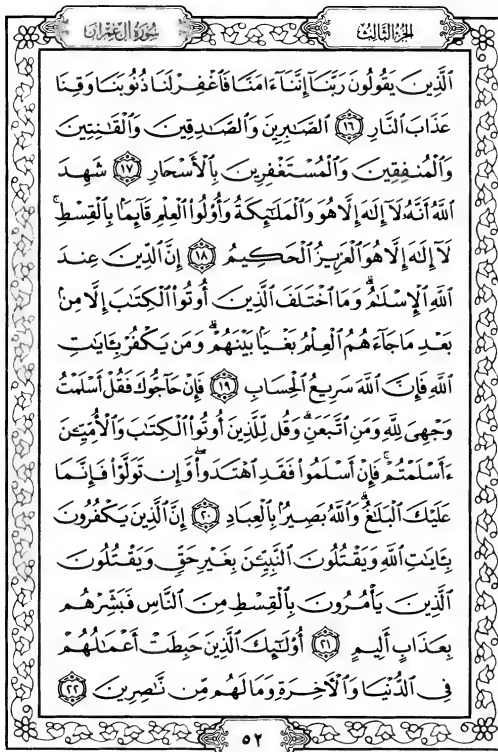 سُورَةُ آلِ عِمْرَانَ
الجُزْءُ الثَّالِثُ
ٱلَّذِينَ يَقُولُونَ رَبَّنَآ إِنَّنَآ ءَامَنَّا فَٱغْفِرْ لَنَا ذُنُوبَنَا وَقِنَا
عَذَابَ ٱلنَّارِ ١٦ ٱلصَّٰبِرِينَ وَٱلصَّٰدِقِينَ وَٱلْقَٰنِتِينَ
وَٱلْمُنفِقِينَ وَٱلْمُسْتَغْفِرِينَ بِٱلْأَسْحَارِ ١٧ شَهِدَ
ٱللَّهُ أَنَّهُۥ لَآ إِلَٰهَ إِلَّا هُوَ وَٱلْمَلَٰٓئِكَةُ وَأُو۟لُوا۟ ٱلْعِلْمِ قَآئِمًۢا بِٱلْقِسْطِ ۚ
لَآ إِلَٰهَ إِلَّا هُوَ ٱلْعَزِيزُ ٱلْحَكِيمُ ١٨ إِنَّ ٱلدِّينَ عِندَ
ٱللَّهِ ٱلْإِسْلَٰمُ ۗ وَمَا ٱخْتَلَفَ ٱلَّذِينَ أُوتُوا۟ ٱلْكِتَٰبَ إِلَّا مِنۢ
بَعْدِ مَا جَآءَهُمُ ٱلْعِلْمُ بَغْيًۢا بَيْنَهُمْ ۗ وَمَن يَكْفُرْ بِـَٔايَٰتِ
ٱللَّهِ فَإِنَّ ٱللَّهَ سَرِيعُ ٱلْحِسَابِ ١٩ فَإِنْ حَآجُّوكَ فَقُلْ أَسْلَمْتُ
وَجْهِىَ لِلَّهِ وَمَنِ ٱتَّبَعَنِ ۗ وَقُل لِّلَّذِينَ أُوتُوا۟ ٱلْكِتَٰبَ وَٱلْأُمِّيِّـۧنَ
ءَأَسْلَمْتُمْ ۚ فَإِنْ أَسْلَمُوا۟ فَقَدِ ٱهْتَدَوا۟ ۖ وَّإِن تَوَلَّوْا۟ فَإِنَّمَا
عَلَيْكَ ٱلْبَلَٰغُ ۗ وَٱللَّهُ بَصِيرٌۢ بِٱلْعِبَادِ ٢٠ إِنَّ ٱلَّذِينَ يَكْفُرُونَ
بِـَٔايَٰتِ ٱللَّهِ وَيَقْتُلُونَ ٱلنَّبِيِّـۧنَ بِغَيْرِ حَقٍّ وَيَقْتُلُونَ
ٱلَّذِينَ يَأْمُرُونَ بِٱلْقِسْطِ مِنَ ٱلنَّاسِ فَبَشِّرْهُم
بِعَذَابٍ أَلِيمٍ ٢١ أُو۟لَٰٓئِكَ ٱلَّذِينَ حَبِطَتْ أَعْمَٰلُهُمْ
فِى ٱلدُّنْيَا وَٱلْـَٔاخِرَةِ وَمَا لَهُم مِّن نَّٰصِرِينَ ٢٢
٥٢